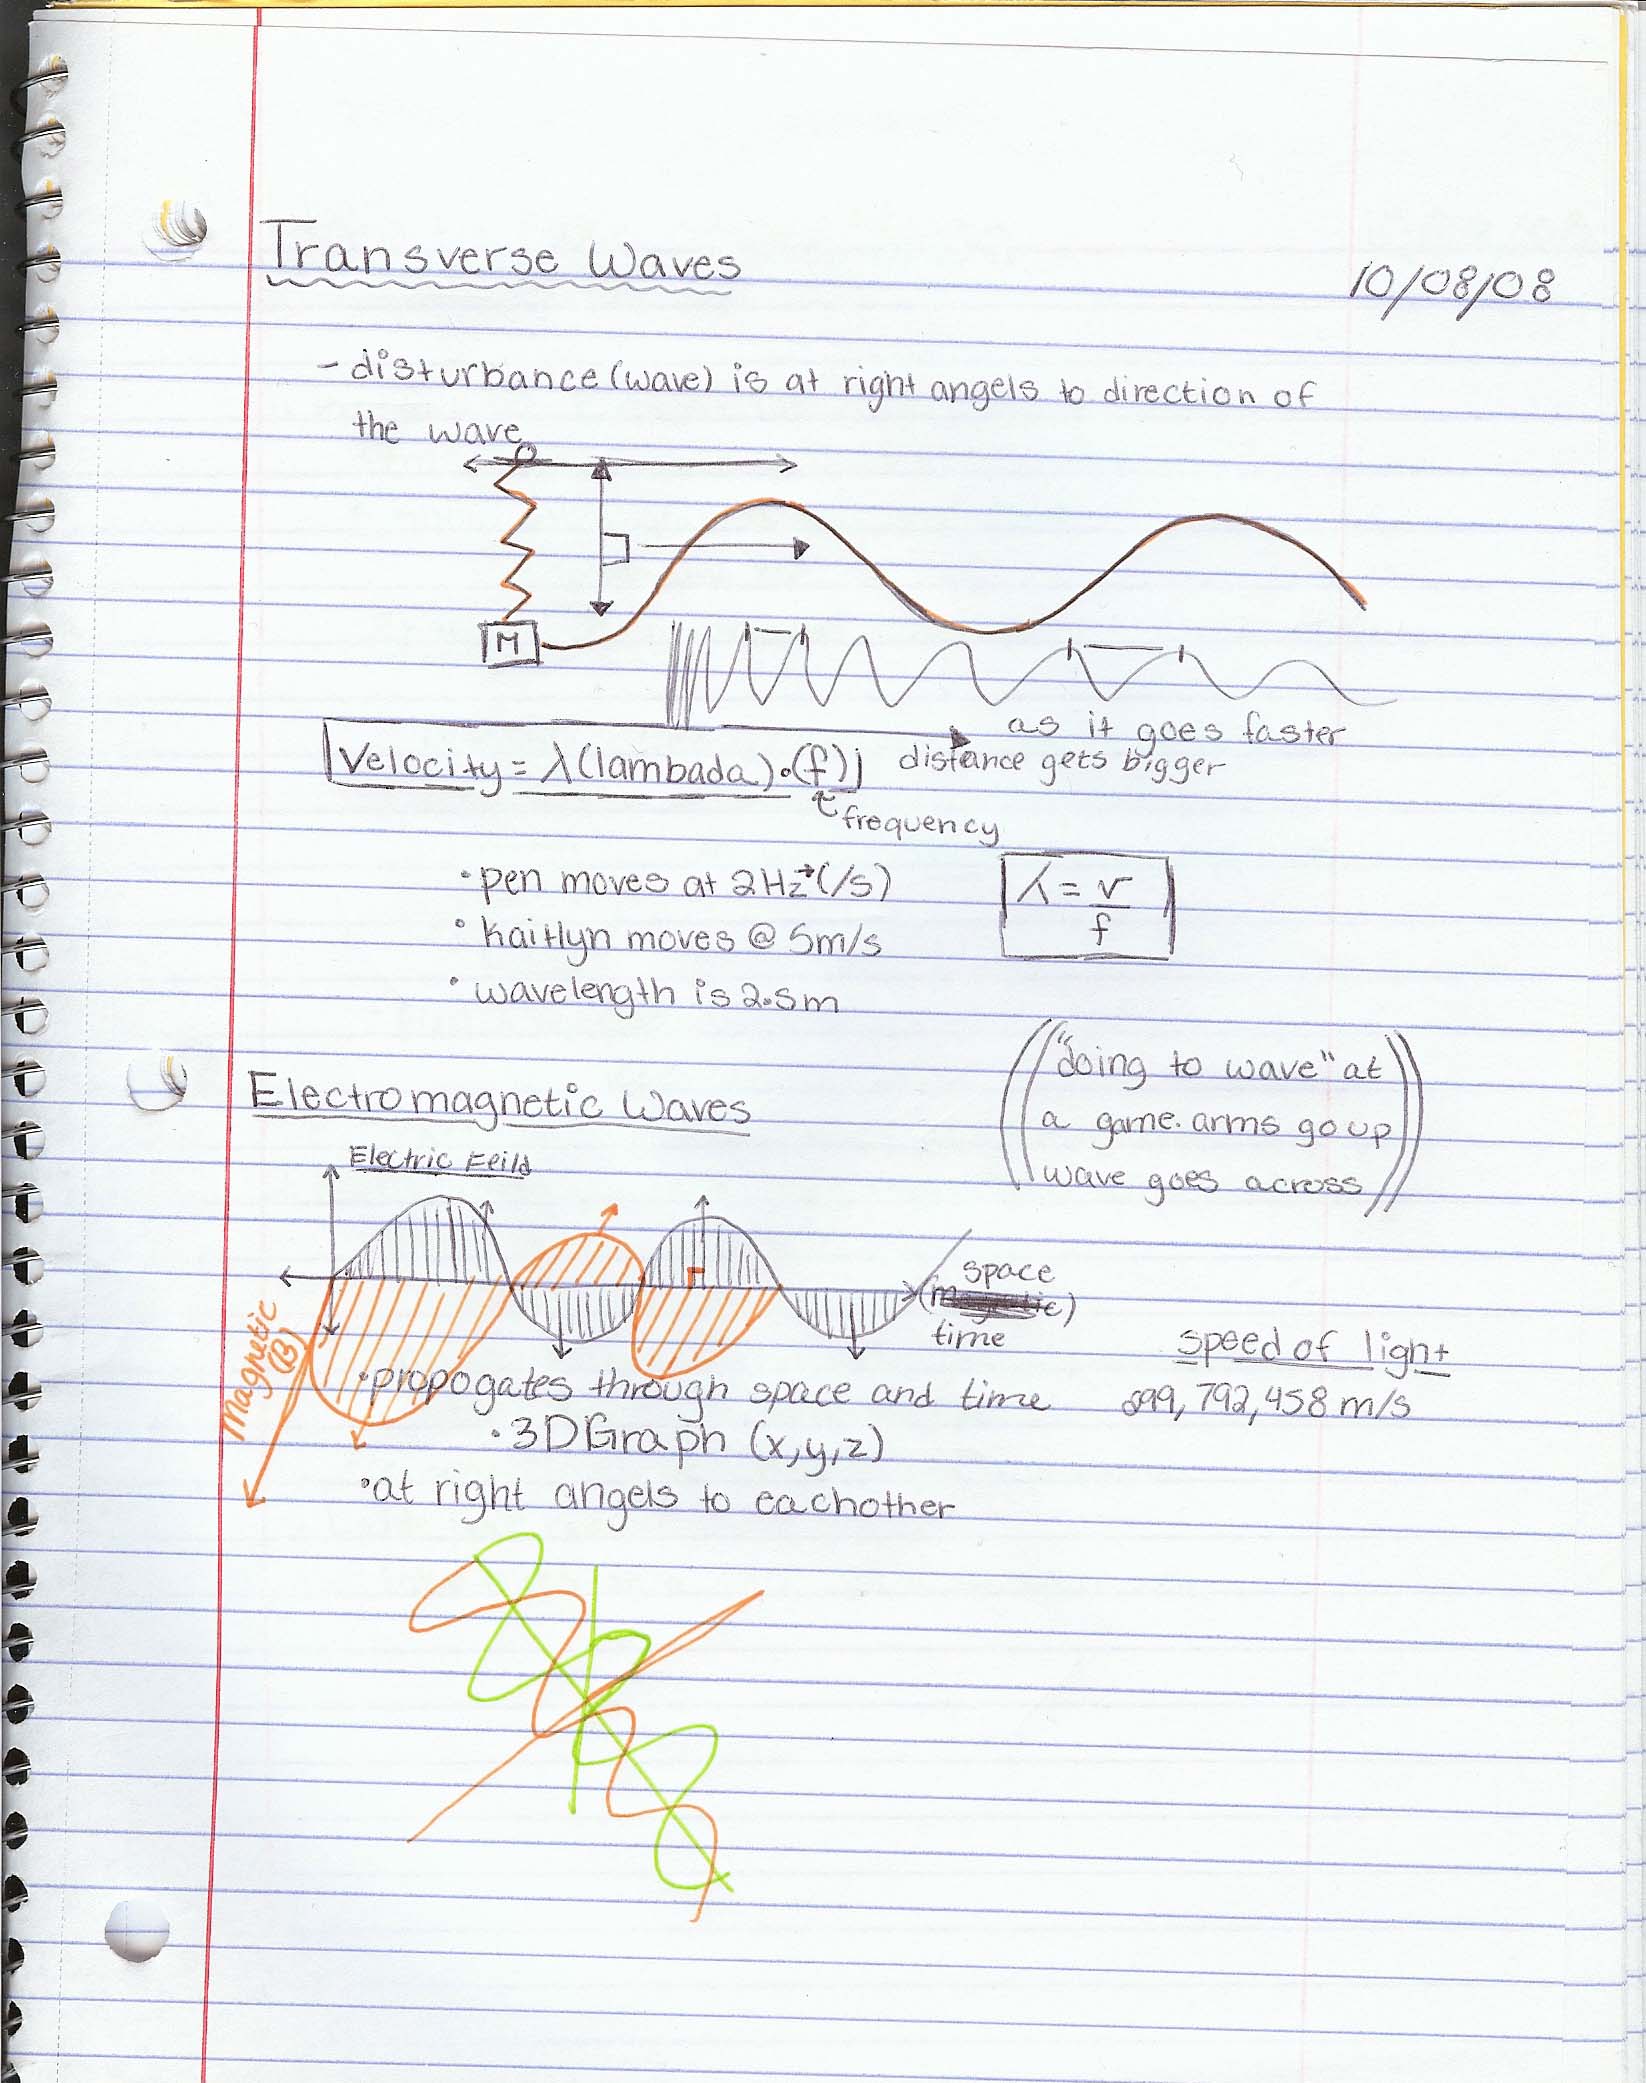 Transverse Waves
10/08/08
- disturbance (wave) is at right angels to direction of
the wave
M
as it goes faster
distance gets bigger
Velocity = λ(lambada)•(f)
frequency
•pen moves at 2Hz→(/s)
λ = v
f
•kaitlyn moves @ 5m/s
•wavelength is 2.5m
"doing to wave" at
a game. arms go up
wave goes across
Electromagnetic Waves
Electric Feild
space
time
Magnetic
(B)
speed of light
299,792,458 m/s
•propogates through space and time
•3D Graph (x,y,z)
•at right angels to eachother